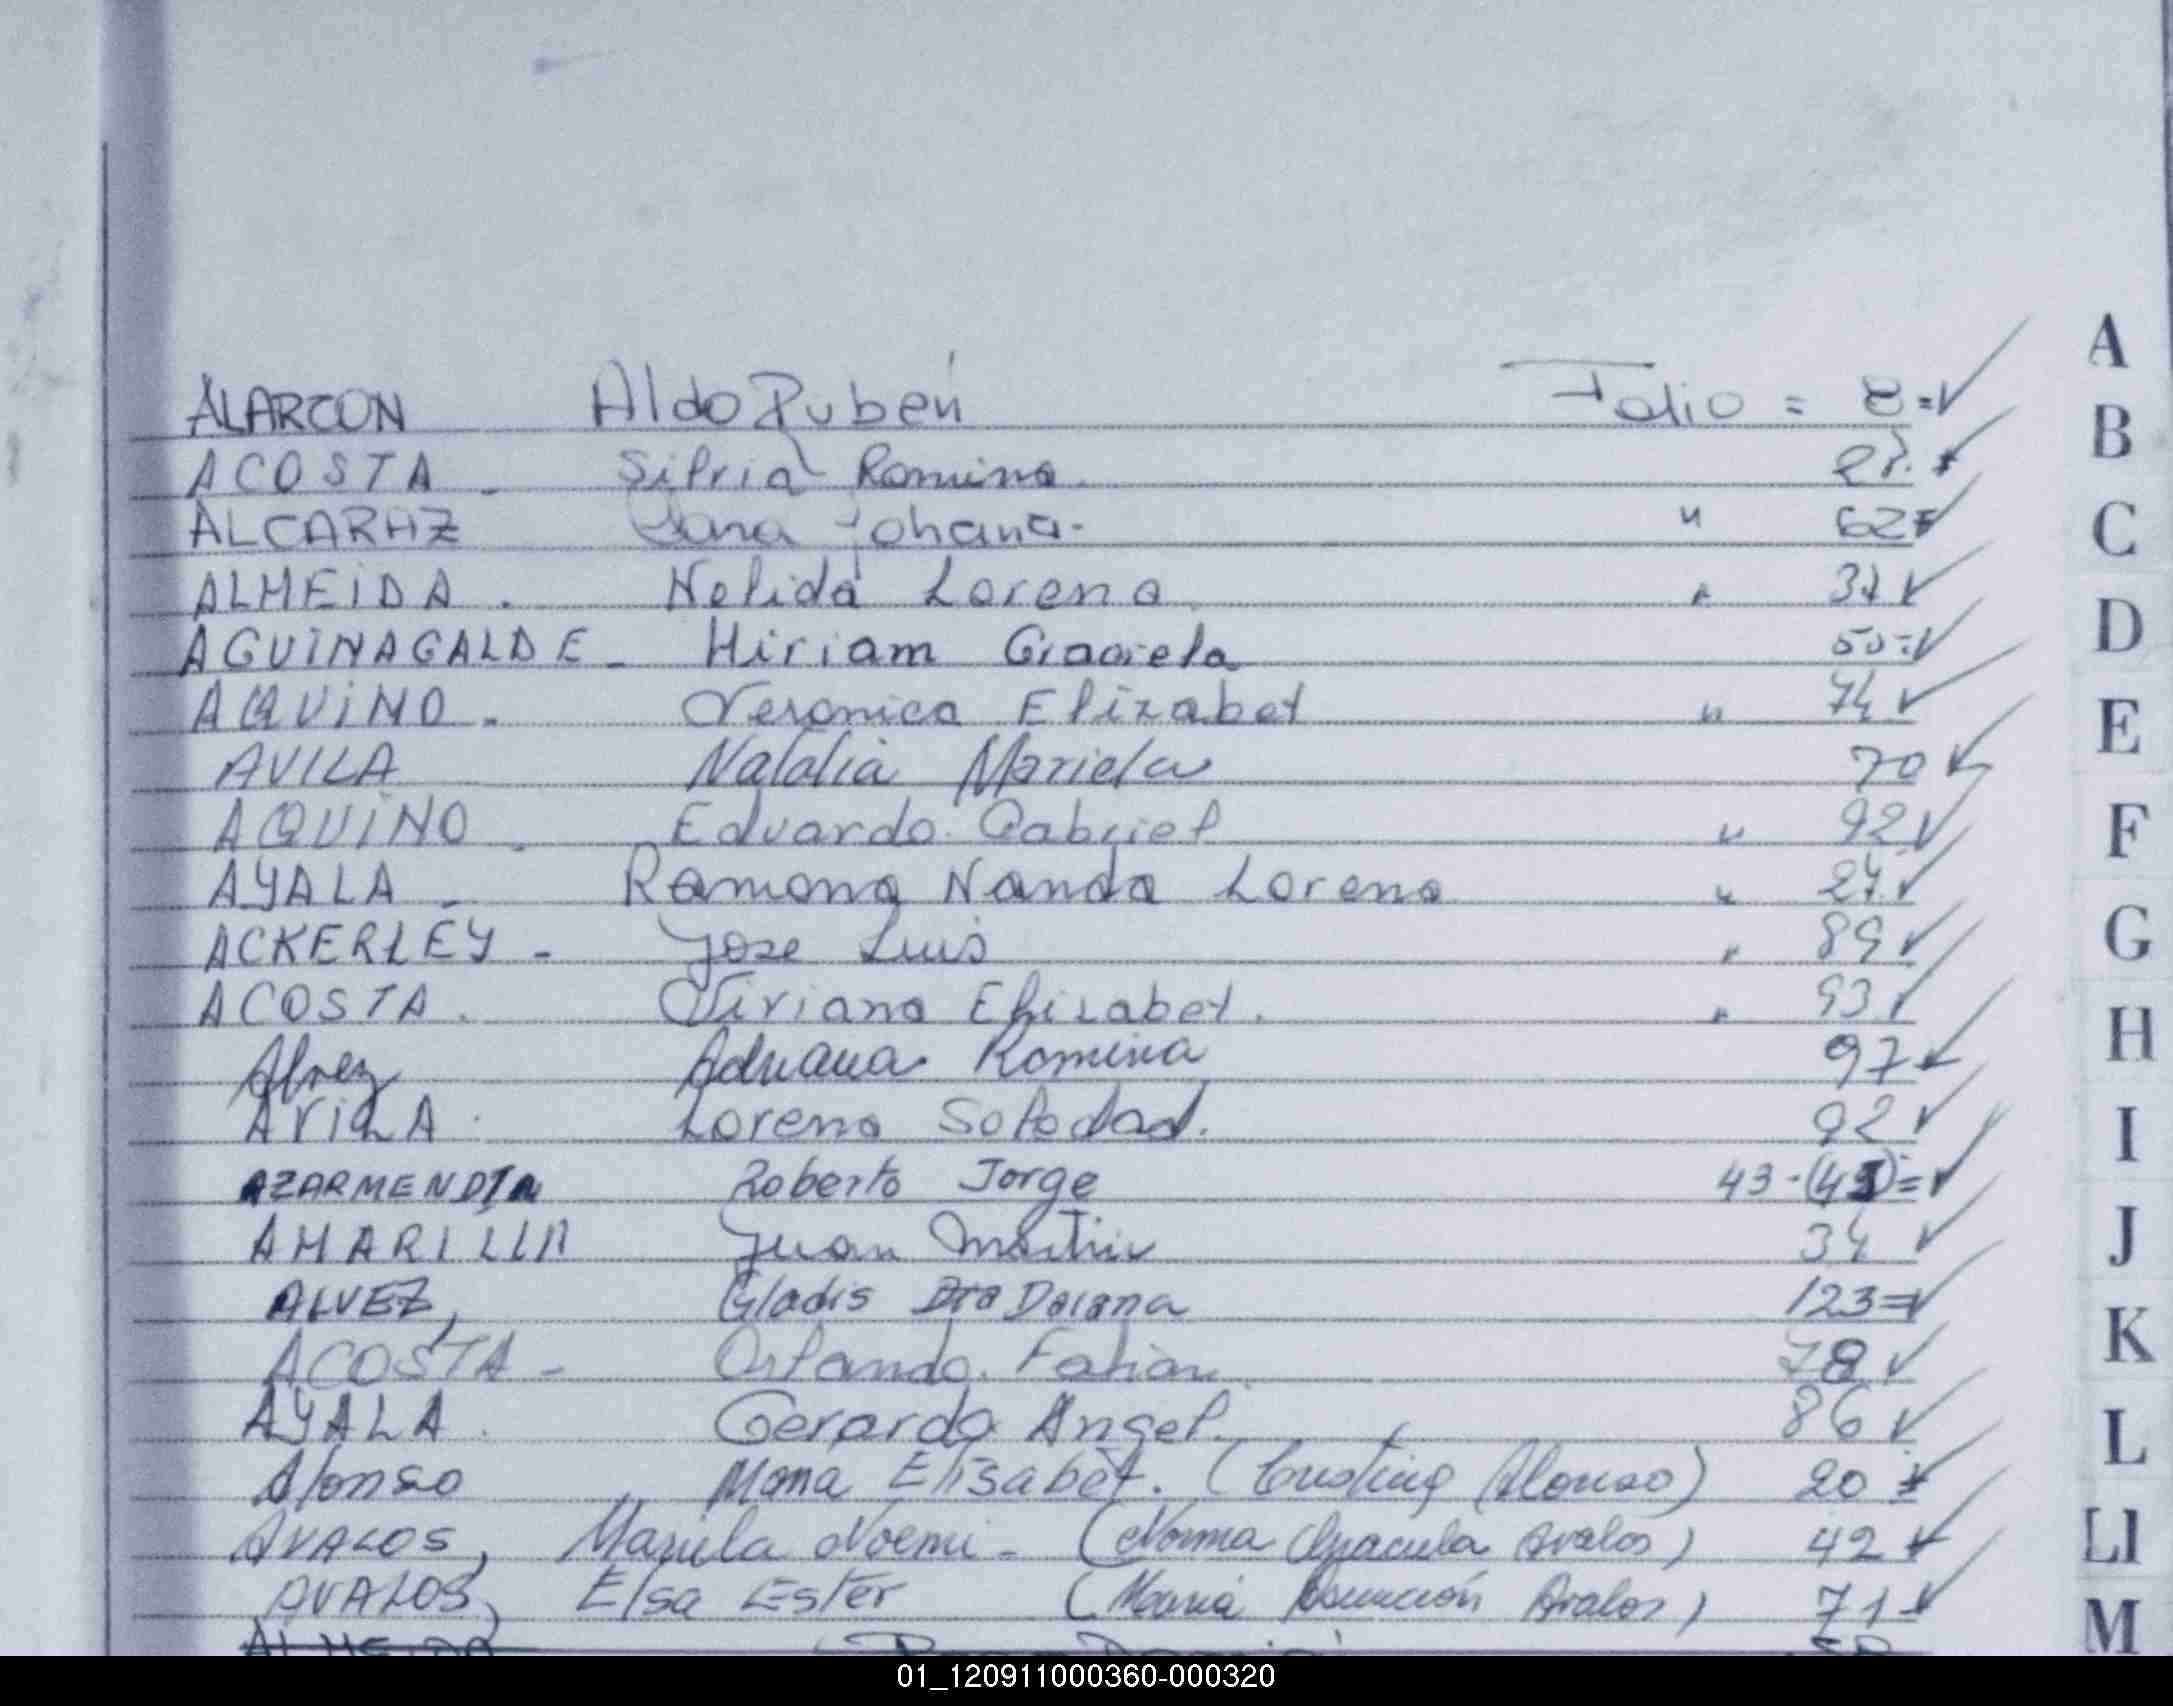 ALARCON Aldo Rubén Folio = 8=
ACOSTA - Silvia Romina 28.
ALCARAZ Sara Johana- " 62=
ALMEIDA. Nelida Lorena "
AGUINAGALDE - Miriam Graciela 50=
AQUINO - Veronica Elizabet " 74
AVILA Natalia Mariela 70
AQUINO. Eduardo Gabriel " 92
AYALA - Ramona Nanda Lorena " 24.
ACKERLEY - Jose Luis " 89
ACOSTA. Viviana Elizabet. " 93
Alvez Adriana Romina 97
AVILA Lorena Soledad. 92
AZARMENDIA Roberto Jorge 43-
AMARILLA Juan Martin 34
ALVEZ, Gladis Daiana 123=
ACOSTA - Orlando Fabian 78
AYALA. Gerardo Angel. 86
Alonso Elisabet. (Cristina Alonso) 20
AVALOS, Mariela Noemi - (Norma Avalos) 42
AVALOS, Elsa Ester (María Asunción Avalos) 71
ALMEIDA
A
B
C
D
E
F
G
H
I
J
K
L
Ll
M
01_120911000360-000320